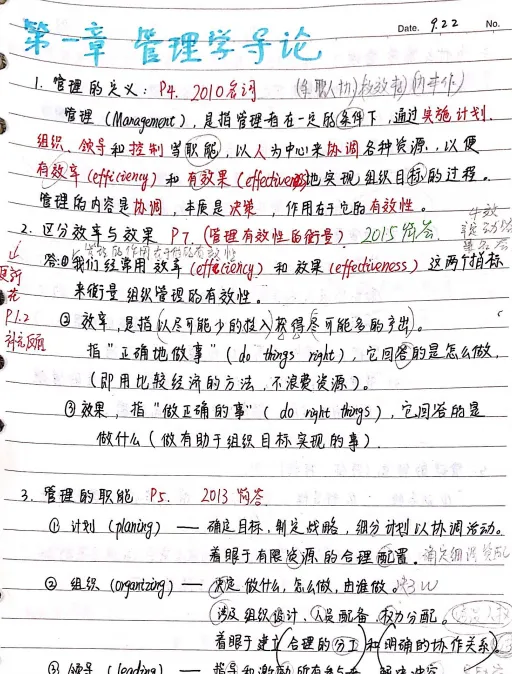 Date. 9.22 No.
第一章 管理学导论
1. 管理的定义: P4. 2010名词
管理 (Management), 是指管理者在一定的条件下, 通过实施计划.
组织、领导和控制等职能, 以人为中心来协调各种资源, 以便
有效率 (efficiency) 和有效果 (effectiveness)地实现组织目标的过程。
管理的内容是协调, 本质是决策, 作用在于它的有效性。
2. 区分效率与效果 P7. (管理有效性的衡量) 2015简答.
答:① 我们经常用效率 (efficiency) 和效果 (effectiveness) 这两个指标
来衡量组织管理的有效性。
P1.2
② 效率, 是指(以尽可能少的投入获得尽可能多的产出)。
指"正确地做事" (do things right), 它回答的是怎么做,
(即用比较经济的方法, 不浪费资源)。
③ 效果, 指"做正确的事" (do right things), 它回答的是
做什么 (做有助于组织目标实现的事).
3. 管理的职能 P5. 2013简答
① 计划 (planing) — 确定目标, 制定战略, 细分计划以协调活动。
着眼于有限资源的合理配置。
② 组织 (organizing) — 决定做什么, 怎么做, 由谁做。
涉及组织设计、人员配备、权力分配。
着眼于建立(合理的分工)和(明确的协作关系)。
③ 领导 (leading) — 指导和激励所有参与者